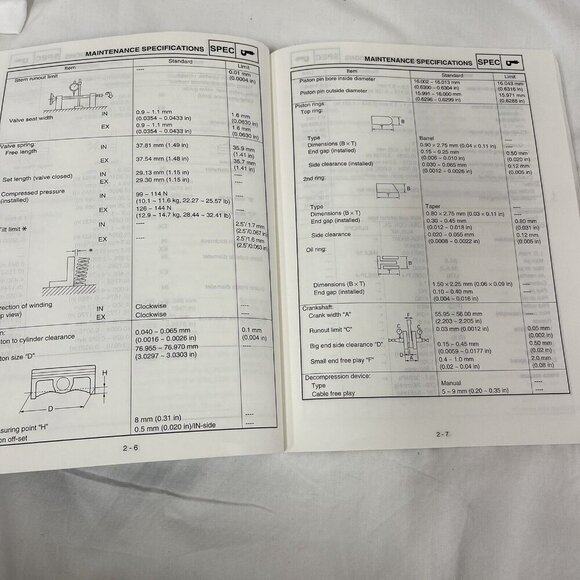 MAINTENANCE SPECIFICATIONS SPEC
Item Standard Limit
Stem runout limit ---- 0.01 mm
(0.0004 in)
Valve seat width IN 0.9 ~ 1.1 mm 1.6 mm
(0.0354 ~ 0.0433 in) (0.0630 in)
EX 0.9 ~ 1.1 mm 1.6 mm
(0.0354 ~ 0.0433 in) (0.0630 in)
Valve spring:
Free length IN 37.81 mm (1.49 in) 35.9 mm
(1.41 in)
EX 37.54 mm (1.48 in) 35.7 mm
(1.41 in)
Set length (valve closed) IN 29.13 mm (1.15 in) ----
EX 29.30 mm (1.15 in) ----
Compressed pressure
(installed) IN 99 ~ 114 N ----
(10.1 ~ 11.6 kg, 22.27 ~ 25.57 lb)
EX 126 ~ 144 N ----
(12.9 ~ 14.7 kg, 28.44 ~ 32.41 lb)
Tilt limit * IN ---- 2.5°/1.7 mm
(2.5°/0.067 in)
EX ---- 2.5°/1.6 mm
(2.5°/0.063 in)
*
rection of winding IN Clockwise ----
p view) EX Clockwise ----
n:
ton to cylinder clearance 0.040 ~ 0.065 mm 0.1 mm
(0.0016 ~ 0.0026 in) (0.004 in)
ton size "D" 76.955 ~ 76.970 mm ----
(3.0297 ~ 3.0303 in)
H
D
suring point "H" 8 mm (0.31 in) ----
on off-set 0.5 mm (0.020 in)/IN-side ----
2 - 6
MAINTENANCE SPECIFICATIONS SPEC
Item Standard Limit
Piston pin bore inside diameter 16.002 ~ 16.013 mm 16.043 mm
(0.6300 ~ 0.6304 in) (0.6316 in)
Piston pin outside diameter 15.991 ~ 16.000 mm 15.971 mm
(0.6296 ~ 0.6299 in) (0.6288 in)
Piston rings:
Top ring:
B
T
Type Barrel ----
Dimensions (B × T) 0.90 × 2.75 mm (0.04 × 0.11 in) ----
End gap (installed) 0.15 ~ 0.25 mm 0.50 mm
(0.006 ~ 0.010 in) (0.020 in)
Side clearance (installed) 0.030 ~ 0.065 mm 0.12 mm
(0.0012 ~ 0.0026 in) (0.005 in)
2nd ring:
B
T
Type Taper ----
Dimensions (B × T) 0.80 × 2.75 mm (0.03 × 0.11 in) ----
End gap (installed) 0.30 ~ 0.45 mm 0.80 mm
(0.012 ~ 0.018 in) (0.031 in)
Side clearance 0.020 ~ 0.055 mm 0.12 mm
(0.0008 ~ 0.0022 in) (0.005 in)
Oil ring:
B
T
Dimensions (B × T) 1.50 × 2.25 mm (0.06 × 0.09 in) ----
End gap (installed) 0.10 ~ 0.40 mm ----
(0.004 ~ 0.016 in)
Crankshaft:
Crank width "A" 55.95 ~ 56.00 mm ----
(2.203 ~ 2.205 in)
Runout limit "C" 0.03 mm (0.0012 in) 0.05 mm
(0.002 in)
Big end side clearance "D" 0.15 ~ 0.45 mm 0.50 mm
(0.0059 ~ 0.0177 in) (0.02 in)
Small end free play "F" 0.4 ~ 1.0 mm 2.0 mm
(0.02 ~ 0.04 in) (0.08 in)
Decompression device:
Type Manual ----
Cable free play 5 ~ 9 mm (0.20 ~ 0.35 in) ----
2 - 7